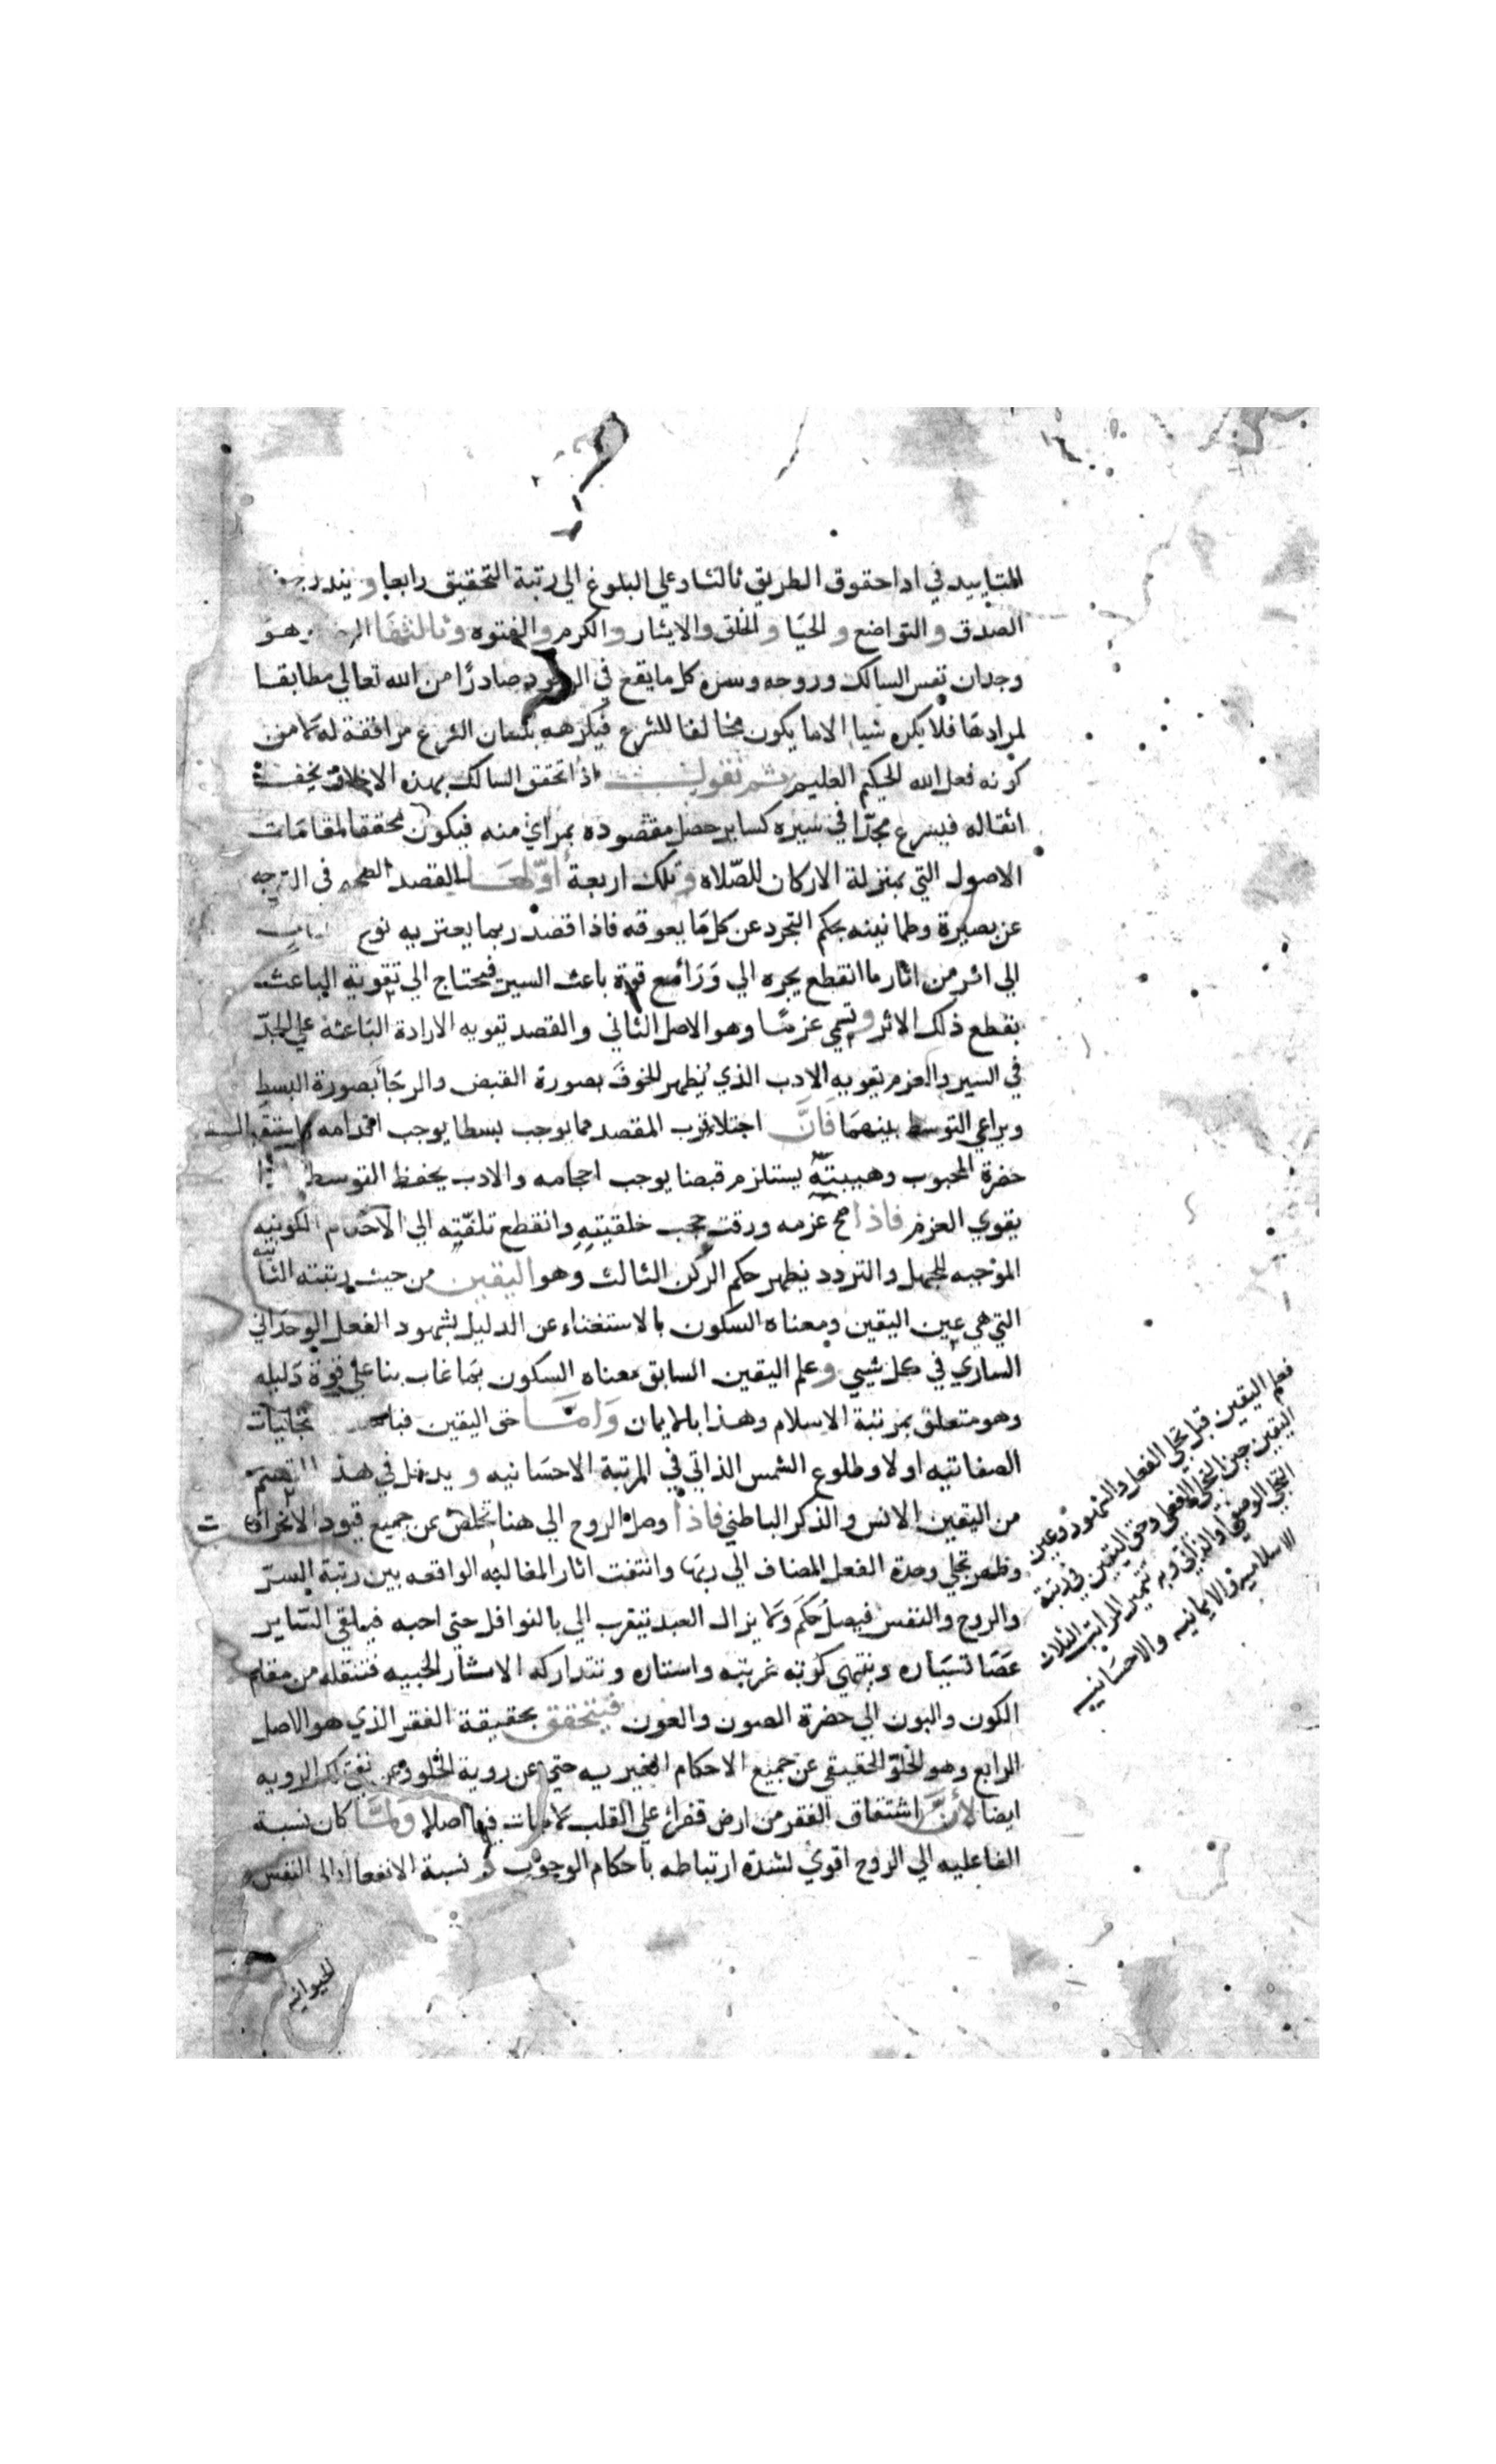 المتاييد في ادا حقوق الطريق ثالثا وعلي البلوغ الي رتبة التحقيق رابعا ويندرج فيه
الصدق والتواضع والحيا والخلق والايثار والكرم والفتوه وثالثها وهو
وجدان نفس السالك وروحه وسره كل ما يقع في الوجود صادرًا من الله تعالي مطابقا
لمرادها فلا يكره شيا الا ما يكون مخالفا للشرع فيكرهه بلسان الشرع موافقة له لا من
كونه فعل الله الحكيم العليم ثم نقول اذا تحقق السالك بهذه الاخلاق يخف
اثقاله فيسرع مجدّا في سيره كساير حصل مقصوده بمرأي منه فيكون محققا لمقامات
الاصول التي بمنزلة الاركان للصّلاه وتلك اربعة أوّلها القصد الصحيح في التوجه
عن بصيرة وطمانينه بحكم التجرد عن كل ما يعوقه فاذا قصد ربما يعتريه نوع
الي اثر من اثار ما انقطع يجره الي وَرَا مع قوة باعث السير فيحتاج الي تقوية الباعث
بقطع ذلك الاثر وتسمي عزمًا وهو الاصل الثاني والقصد تقويه الارادة الباعثه علي الجدّ
في السير والعزم تقويه الادب الذي يُظهر الخوف بصورة القبض والرجَا بصورة البسط
ويراعي التوسط بينهما فَانَّ اجتلا قرب المقصد مما يوجب بسطا يوجب اقدامه
حضرة المحبوب وهيبته يستلزم قبضا يوجب احجامه والادب يحفظ التوسط
يقوي العزم فاذا صح عزمه ورقت حجب خلقيتهِ وانقطع تلفّته الي الاحكام الكونيه
الموجبه للجهل والتردد يظهر حكم الركن الثالث وهو اليقين من حيث رتبته الثانيه
التي هي عين اليقين ومعناه السكون بالاستغناء عن الدليل بشهود الفعل الوحداني
الساري في كل شيي وعلم اليقين السابق معناه السكون بما غاب بنا علي قوة دليله
وهو متعلق بمرتبة الاسلام وهذا بالايمان وَامَّا حق اليقين تجليات
الصفاتيه اولا وطلوع الشمس الذاتي في المرتبة الاحسانيه ويدخل في هذ القسم
من اليقين الانس والذكر الباطني فاذا وصل الروح الي هنا تخلص من جميع قيود الانحرافات
وظهر تجلي وحدة الفعل المضاف الي ربها وانتفت اثار المغالبه الواقعه بين رتبة السرّ
والروح والنفس فيصل حكم ولا يزال العبد يتقرب الي بالنوافل حتي احبه فيلقي السّاير
عصا تسياره وينتهي كونه غربته واستاره وتتداركه الاسرار الحبيه فتنقله من مقام
الكون والبون الي حضرة الصون والعون فيتحقق بحقيقة الفقر الذي هو الاصل
الرابع وهو الخلوّ الحقيقي عن جميع الاحكام الغيريه حتي عن روية الخلو وعن نفي تلك الرويه
ايضا لأنَّ اشتقاق الفقر من ارض قفراي علي القلب لا نبات فيها اصلا ولمّا كان نسبة
الفاعليه الي الروح اقوي لشدة ارتباطه باحكام الوجوب ونسبة الانفعال الي النفس
الحيوانيه
فعلم اليقين قبل تجلي الفعل والشهود وعين
اليقين حين التجلي الفعلي وحق اليقين في رتبة
التجلي الوصفي او الذاتي وبه تتميز المراتب الثلاث
الاسلاميه والايمانيه والاحسانيه